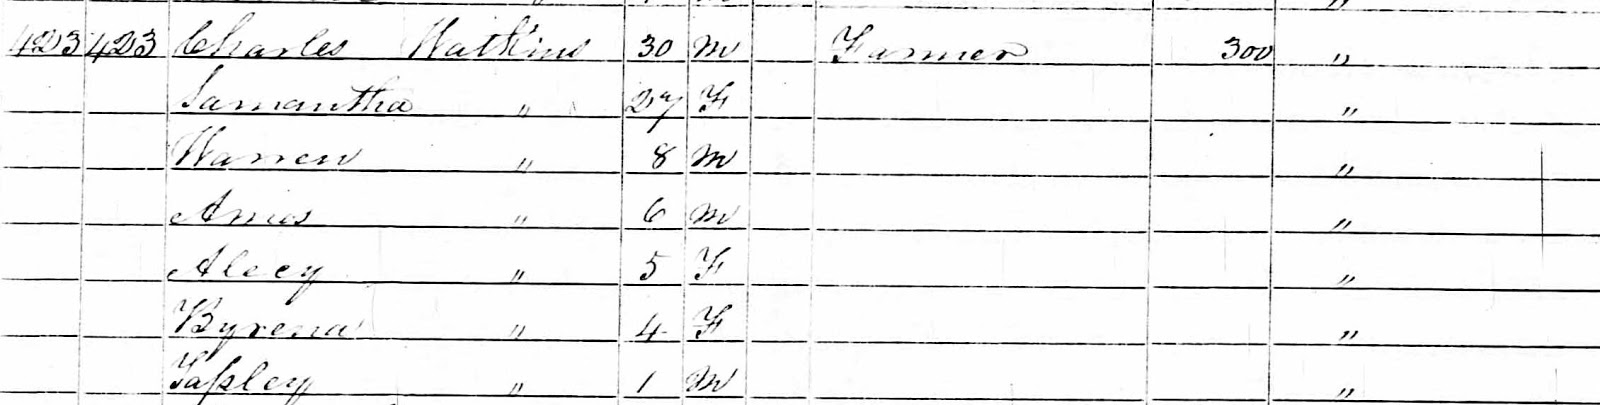 423 423 Charles Watkins 30 M Farmer 300 "
Samantha " 27 F "
Warren " 8 M "
Amos " 6 M "
Alecy " 5 F "
Byrena " 4 F "
Tapley " 1 M "